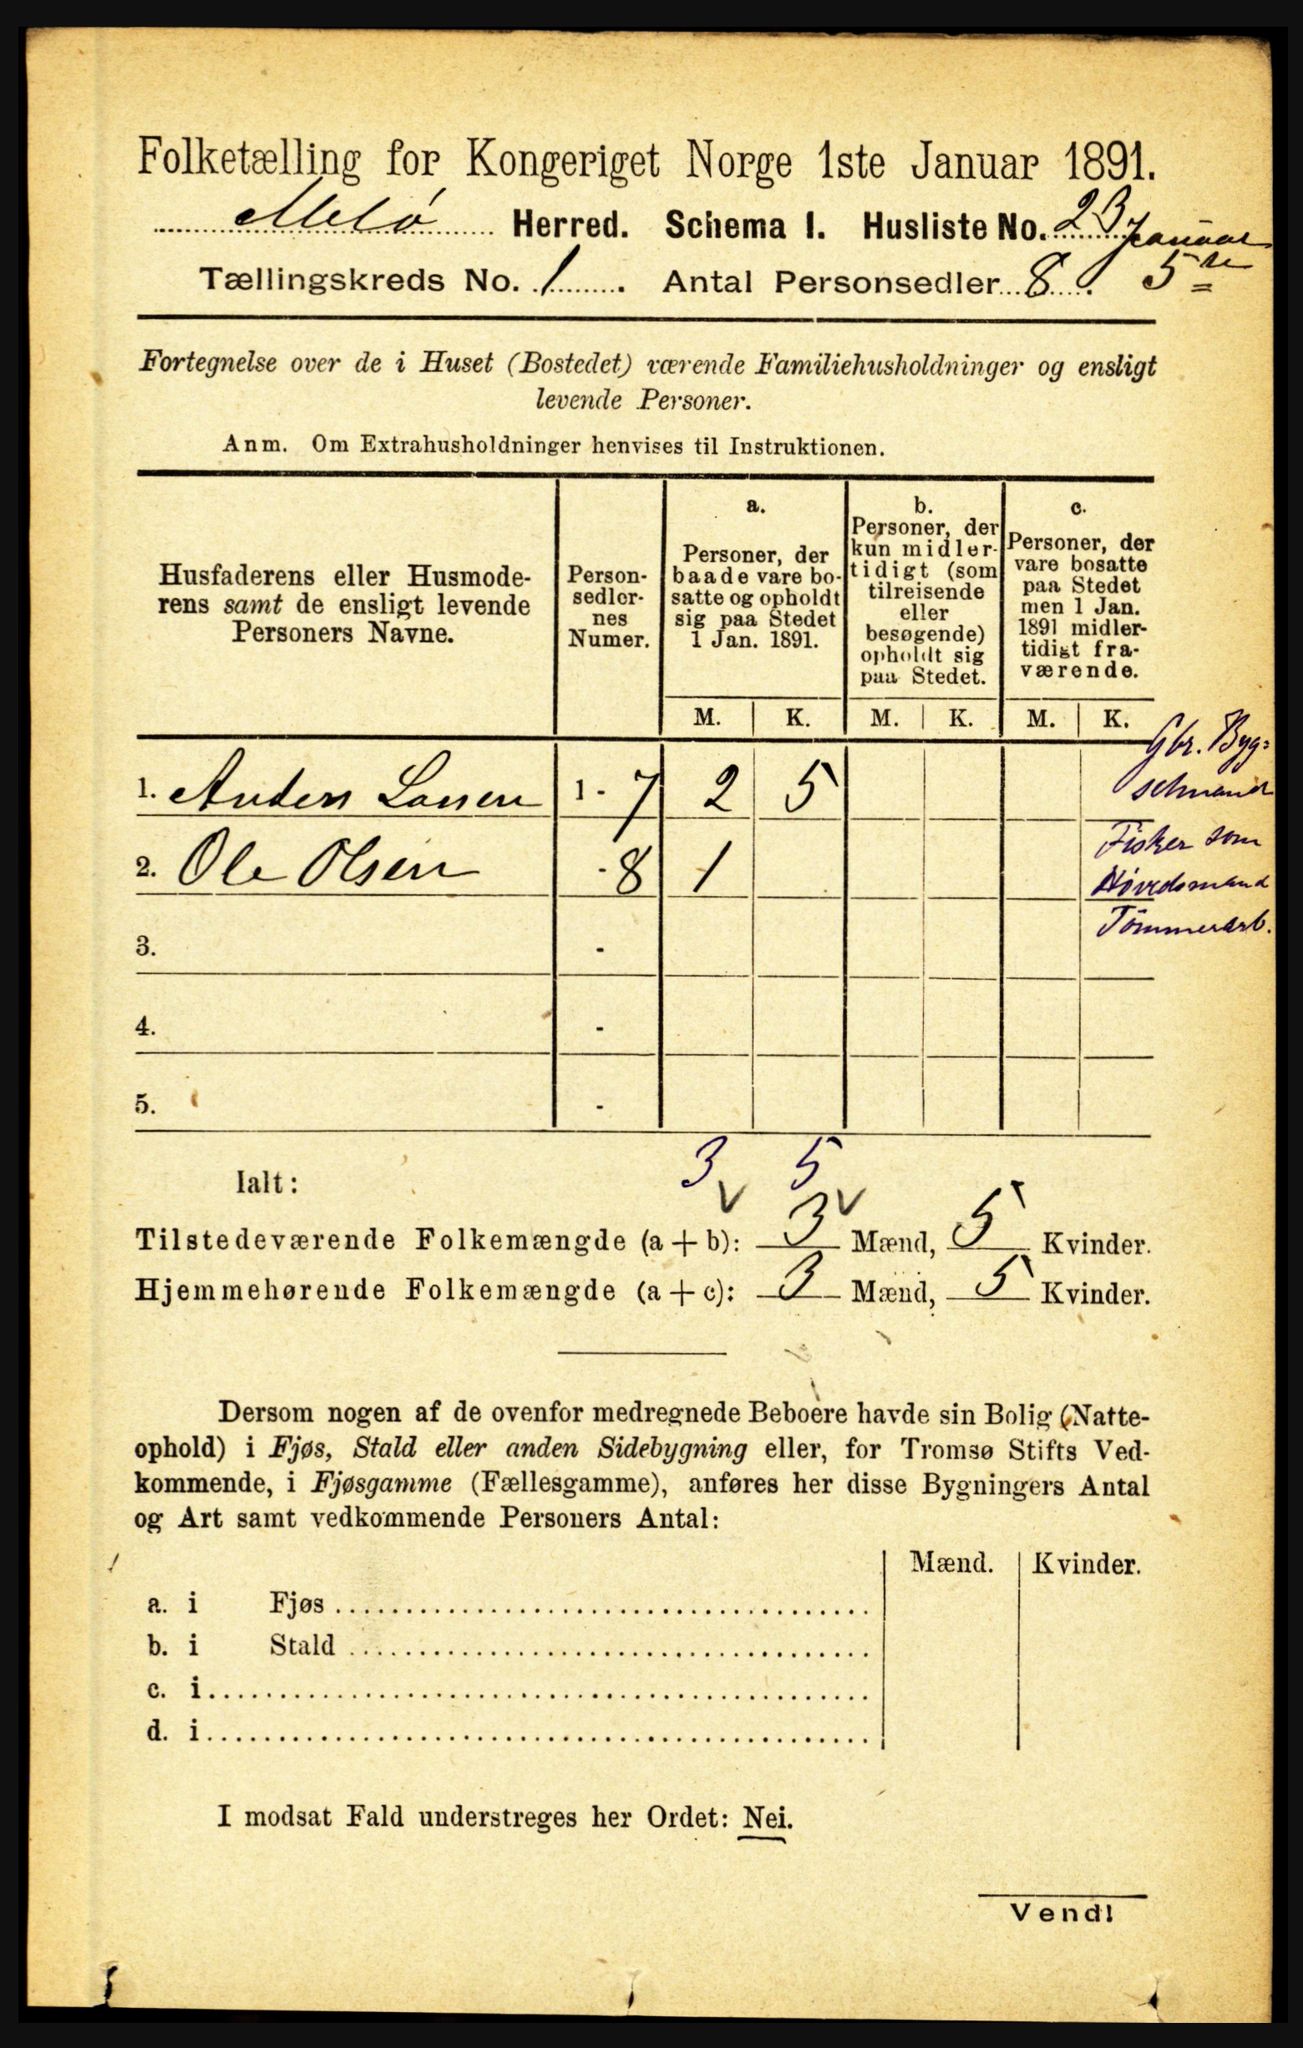 Folketælling for Kongeriget Norge 1ste Januar 1891.
Melø Herred. Schema I. Husliste No. 23
Januar
Tællingskreds No. 1. Antal Personsedler 8. 5te
Fortegnelse over de i Huset (Bostedet) værende Familiehusholdninger og ensligt
levende Personer.
Anm. Om Extrahusholdninger henvises til Instruktionen.
Husfaderens eller Husmode-
rens samt de ensligt levende
Personers Navne.
Person-
sedler-
nes
Numer.
a.
Personer, der
baade vare bo-
satte og opholdt
sig paa Stedet
1 Jan. 1891.
b.
Personer, der
kun midler-
tidigt (som
tilreisende
eller
besøgende)
opholdt sig
paa Stedet.
c.
Personer, der
vare bosatte
paa Stedet
men 1 Jan.
1891 midler-
tidigt fra-
værende.
M. K. M. K. M. K.
Gbr. Byg-
selmand
1. Anders Larsen 1 - 7 2 5
Fisker som
2. Ole Olsen - 8 1
Høvedsmand
Tømmerarb.
3. -
4. -
5. -
3 5
Ialt:
Tilstedeværende Folkemængde (a + b): 3 Mænd, 5 Kvinder.
Hjemmehørende Folkemængde (a + c): 3 Mænd, 5 Kvinder.
Dersom nogen af de ovenfor medregnede Beboere havde sin Bolig (Natte-
ophold) i Fjøs, Stald eller anden Sidebygning eller, for Tromsø Stifts Ved-
kommende, i Fjøsgamme (Fællesgamme), anføres her disse Bygningers Antal
og Art samt vedkommende Personers Antal:
Mænd. Kvinder.
a. i Fjøs
b. i Stald
c. i
d. i
I modsat Fald understreges her Ordet: Nei.
Vend!